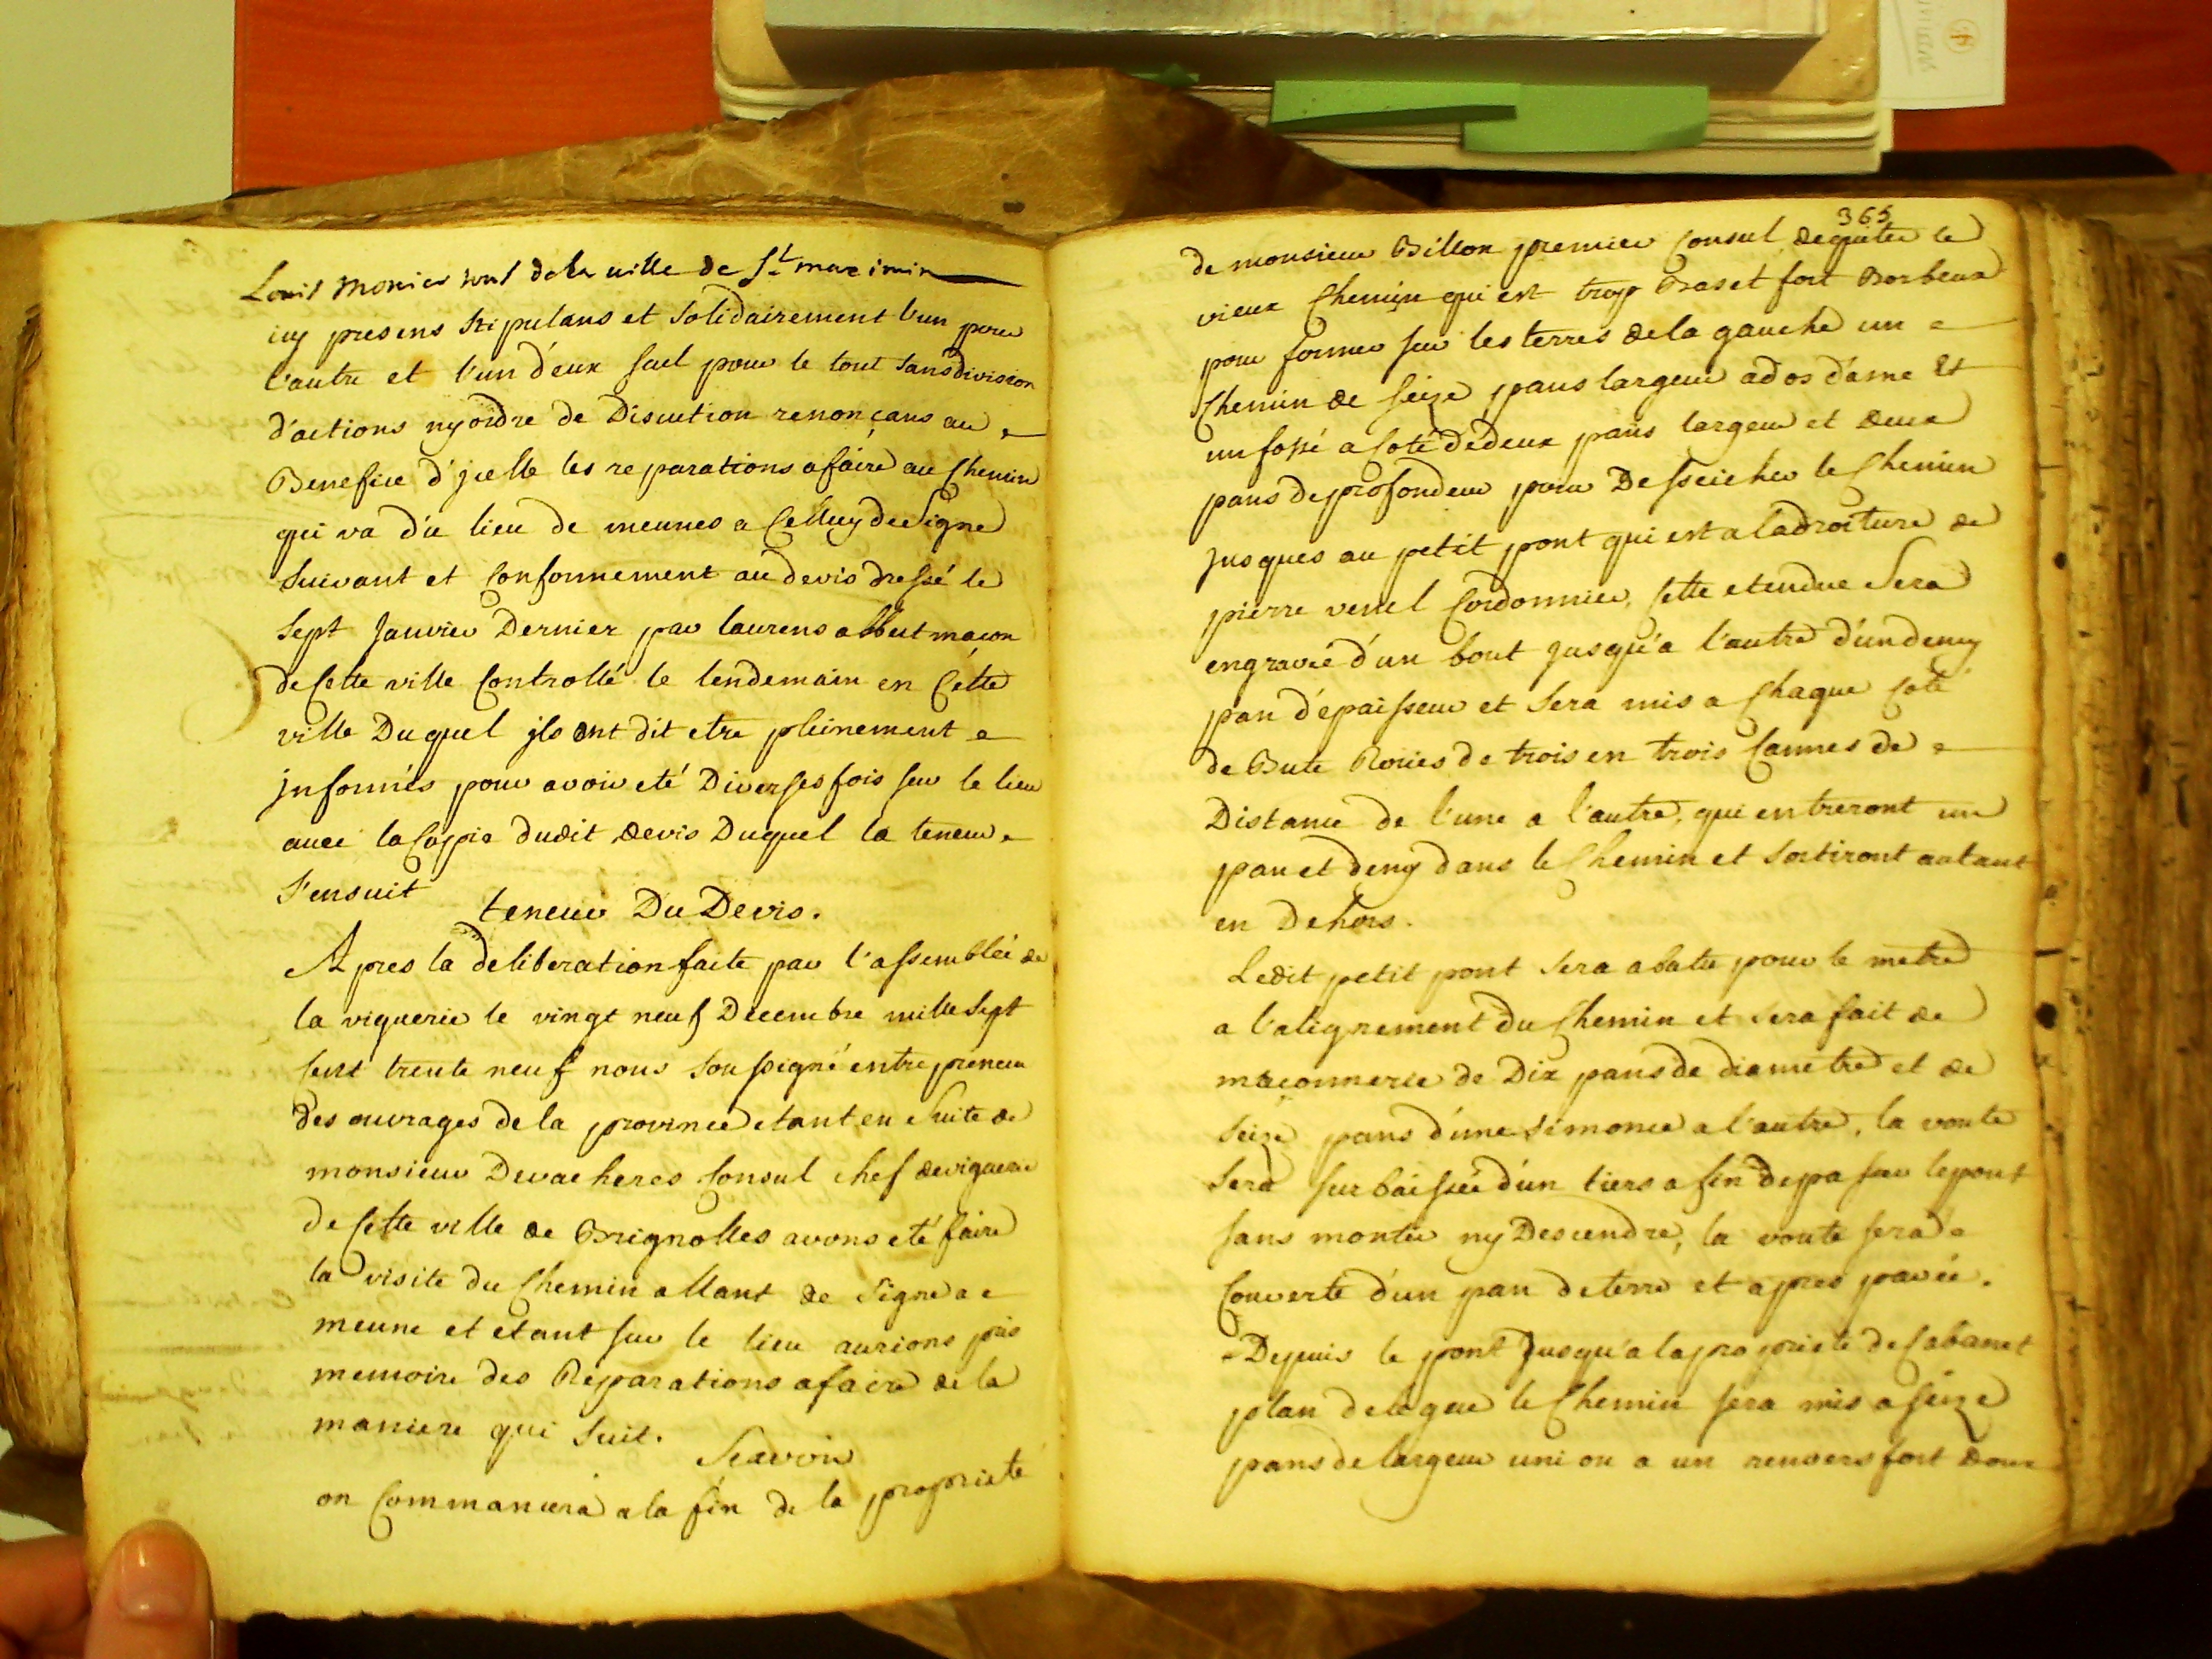 Louis Monier tous de la ville de St maximin
icy presens stipulans et solidairement l'un pour
l'autre et l'un d'eux seul pour le tout sans division
d'actions ny ordre de Discution renonçans au
Benefice d'jcelle les reparations a faire au Chemin
qui va du lieu de meunes a Celluy de Signe
Suivant et Conformement au devis dressé le
Sept Janvier Dernier par laurens abbut maçon
de Cette ville Controllé le lendemain en Cette
ville Duquel jls ont dit etre pleinement
jnformés pour avoir eté Diverses fois sur le lieu
avec la Copie dudit devis Duquel la teneur
S'ensuit
teneur Du Devis.
Apres la deliberation faite par l'assemblée de
la viguerie le vingt neuf Decembre mille Sept
Cent trente neuf nous Soussigné entrepreneur
des ouvrages de la province etant en Suite de
monsieur Devacheres Consul chef de viguerie
de Cette ville de Brignolles avons eté faire
la visite du Chemin allant de Signe a
meune et etant sur le lieu aurions pris
memoire des Reparations a faire de la
maniere qui Suit.
Scavoir
on Commancera a la fin de la proprieté
365
de monsieur Billon premier Consul dequiter le
vieux Chemin qui est trop Bas et fort Borbeux
pour former sur les terres de la gauche un
Chemin de seize pans largeur a dos d'ame Et
un fossé a Coté de deux pans largeur et deux
pans de profondeur pour Desseicher le Chemin
jusques au petit pont qui est a la droiture de
pierre venel Cordonnier, Cette etendue Sera
engravée d'un bout jusqu'a l'autre d'un demy
pan d'epaisseur et Sera mis a Chaque Coté
de Bute Roues de trois en trois Cannes de
Distance de l'une a l'autre, qui entreront un
pan et demy dans le Chemin et Sortiront autant
en Dehors.
Ledit petit pont Sera abatu pour le metre
a l'alignement du Chemin et Sera fait de
maçonnerie de Dix pans de diametre et de
Seize pans d'une Simonce a l'autre, la voute
Sera surbaissée d'un tiers a fin de passer le pont
sans monter ny Descendre, la voute sera
Couverte d'un pan de terre et apres pavée.
Depuis le pont Jusqu'a la proprieté de Cabanet
plan de legue le Chemin sera mis a seize
pans de largeur uni ou a un renvers fort doux